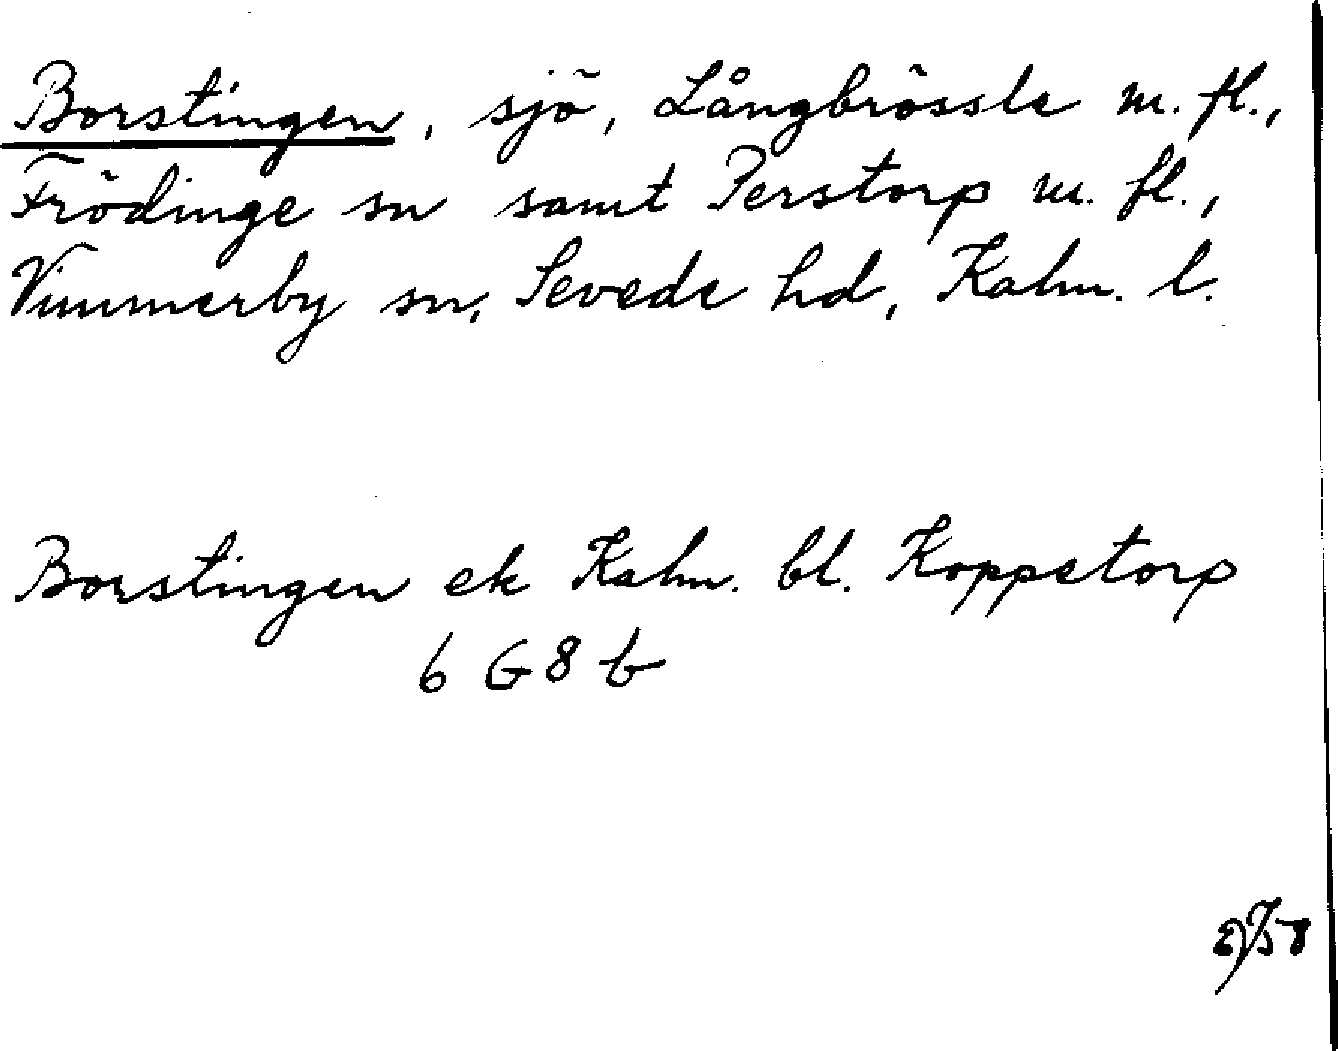 Borstingen, sjö, Långbrössle m. fl.,
Frödinge sn samt Perstorp m. fl.,
Vimmerby sn, Sevede hd, Kalm. l.
Borstingen ek Kalm. bl. Koppetorp
6 G 8 b